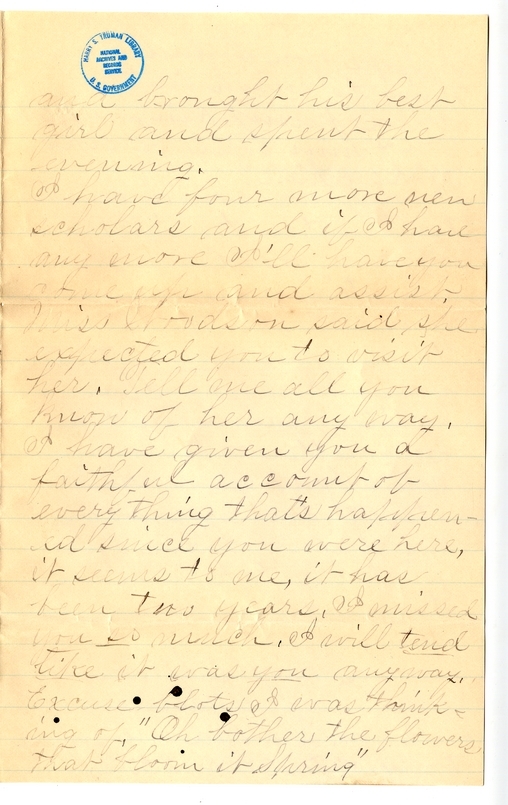 HARRY S. TRUMAN LIBRARY
NATIONAL
ARCHIVES AND
RECORDS
SERVICE
U.S. GOVERNMENT
and brought his best
girl and spent the
evening.
I have four more new
scholars and if I have
any more I'll have you
come up and assist.
Miss Woodson said she
expected you to visit
her. Tell me all you
know of her any way.
I have given you a
faithful account of
everything that's happen-
ed since you were here,
it seems to me, it has
been two years. I missed
you so much. I will
like it was you anyway.
Excuse blots I was think-
ing of, "Oh bother the flowers
that bloom it Spring"